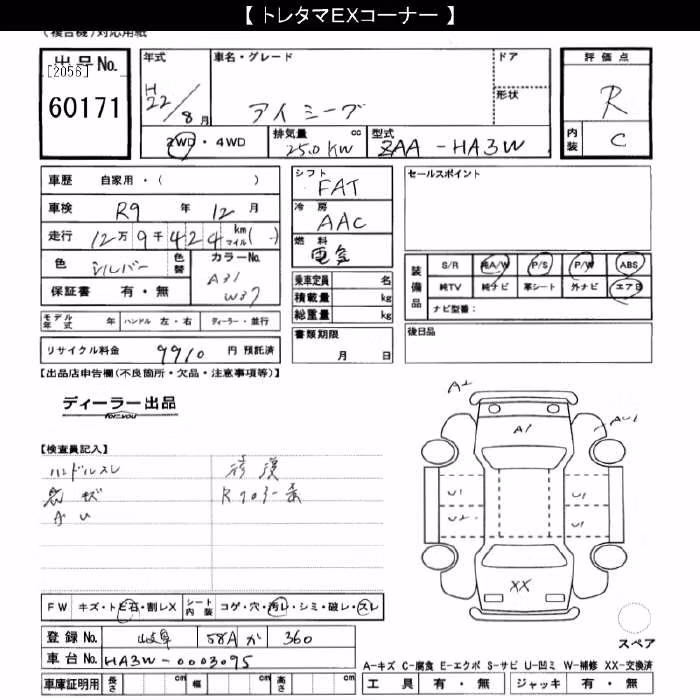 【 トレタマEXコーナー 】
(複合機)対応用紙
出品No.
[2056]
60171
年式
H22/8月
車名・グレード
アイミーブ
ドア
形状
評価点
R
内装
C
2WD・4WD
排気量 cc
25.0KW
型式
ZAA-HA3W
車歴 自家用・( )
車検 R9 年 12 月
走行 12万 9千 424 km マイル( )
色 シルバー
色替
カラーNo.
A31
W37
保証書 有・無
モデル年式 年 ハンドル 左・右 ディーラー・並行
リサイクル料金 9910 円 預託済
シフト
FAT
冷房
AAC
燃料
電気
乗車定員 名
積載量 kg
総重量 kg
書類期限
月 日
セールスポイント
装備品
S/R 純A/W P/S P/W ABS
純TV 純ナビ 革シート 外ナビ エアB
ナビ型番:
後日品
【出品店申告欄(不良箇所・欠品・注意事項等)】
ディーラー出品
for you
【検査員記入】
ハンドルスレ
R
A2
A1
AU1
U1
U1
U2
U1
XX
スペア
FW キズ・トビ石・割レX シート内装 コゲ・穴・汚レ・シミ・破レ・スレ
登録No. 岐阜 58A か 360
車台No. HA3W-0003095
車庫証明用 長さ cm 幅 cm 高さ cm
A-キズ C-腐食 E-エクボ S-サビ U-凹ミ W-補修 XX-交換済
工具 有・無 ジャッキ 有・無